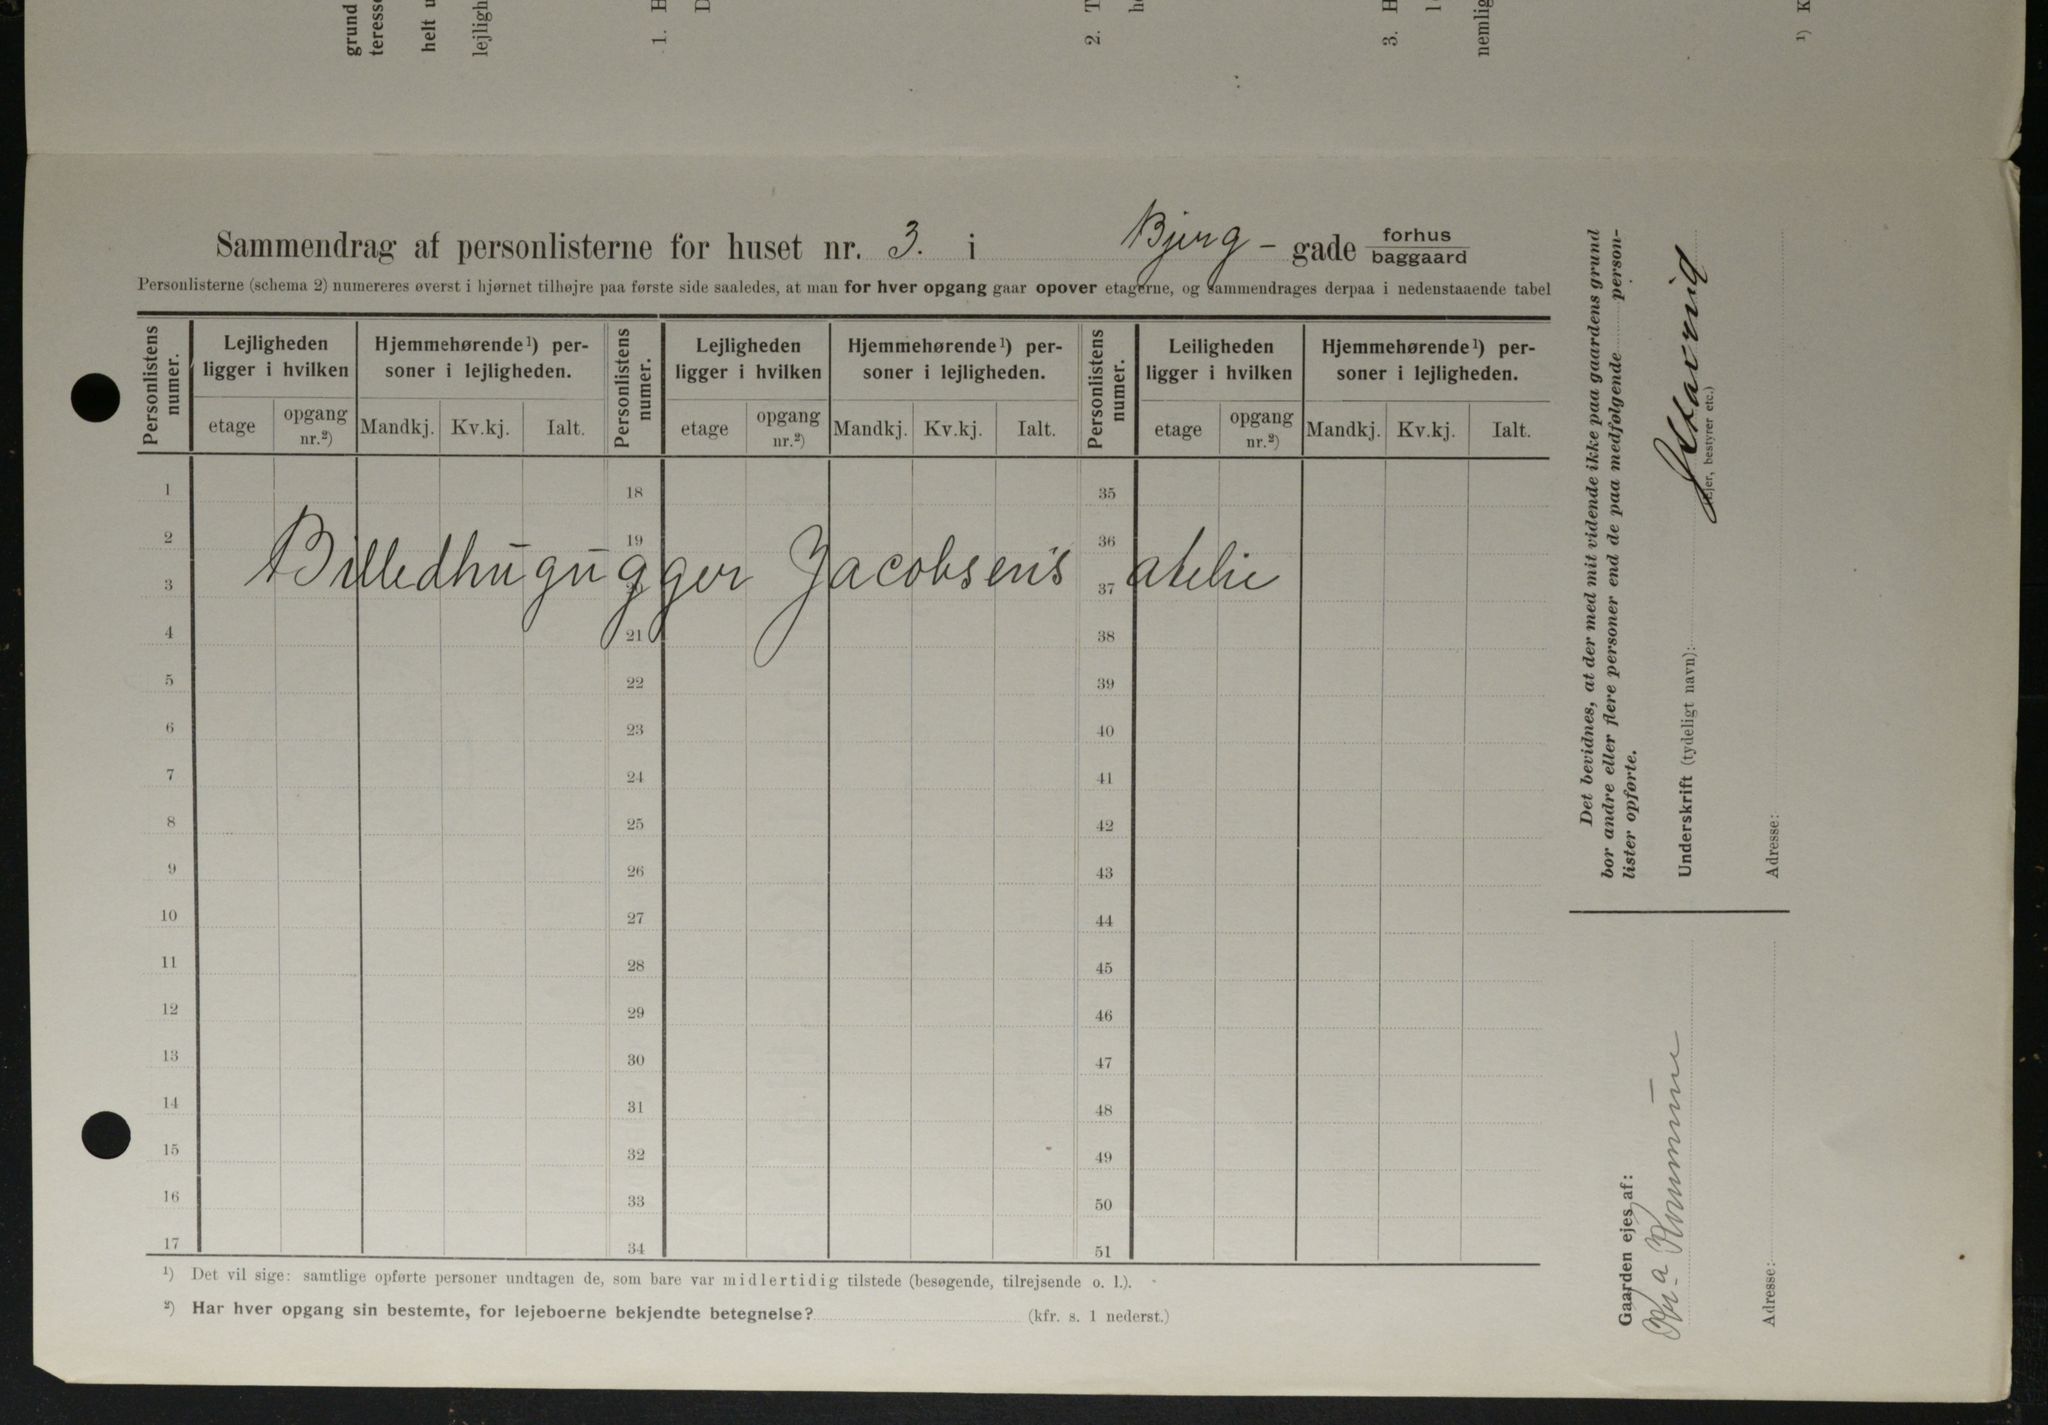 grund
teresse
helt u
lejligh
1. H
D
2. T
he
3. H
l
nemlig
¹) K
Sammendrag af personlisterne for huset nr. 3. i Bjerg - gade forhus
baggaard
Personlisterne (schema 2) numereres øverst i hjørnet tilhøjre paa første side saaledes, at man for hver opgang gaar opover etagerne, og sammendrages derpaa i nedenstaaende tabel
Personlistens numer. Lejligheden ligger i hvilken Hjemmehørende¹) personer i lejligheden. Personlistens numer. Lejligheden ligger i hvilken Hjemmehørende¹) personer i lejligheden. Personlistens numer. Leiligheden ligger i hvilken Hjemmehørende¹) personer i lejligheden.
etage opgang nr.²) Mandkj. Kv.kj. Ialt. etage opgang nr.²) Mandkj. Kv.kj. Ialt. etage opgang nr.²) Mandkj. Kv.kj. Ialt.
1 18 35
2 19 36
Billedhugugger Jacobsens atelie
3 20 37
4 21 38
5 22 39
6 23 40
7 24 41
8 25 42
9 26 43
10 27 44
11 28 45
12 29 46
13 30 47
14 31 48
15 32 49
16 33 50
17 34 51
¹) Det vil sige: samtlige opførte personer undtagen de, som bare var midlertidig tilstede (besøgende, tilrejsende o. l.).
²) Har hver opgang sin bestemte, for lejeboerne bekjendte betegnelse? (kfr. s. 1 nederst.)
Det bevidnes, at der med mit vidende ikke paa gaardens grund
bor andre eller flere personer end de paa medfølgende person-
lister opførte.
Underskrift (tydeligt navn):
(Ejer, bestyrer etc.)
Adresse:
Gaarden ejes af:
Kr.a Kommune
Adresse: